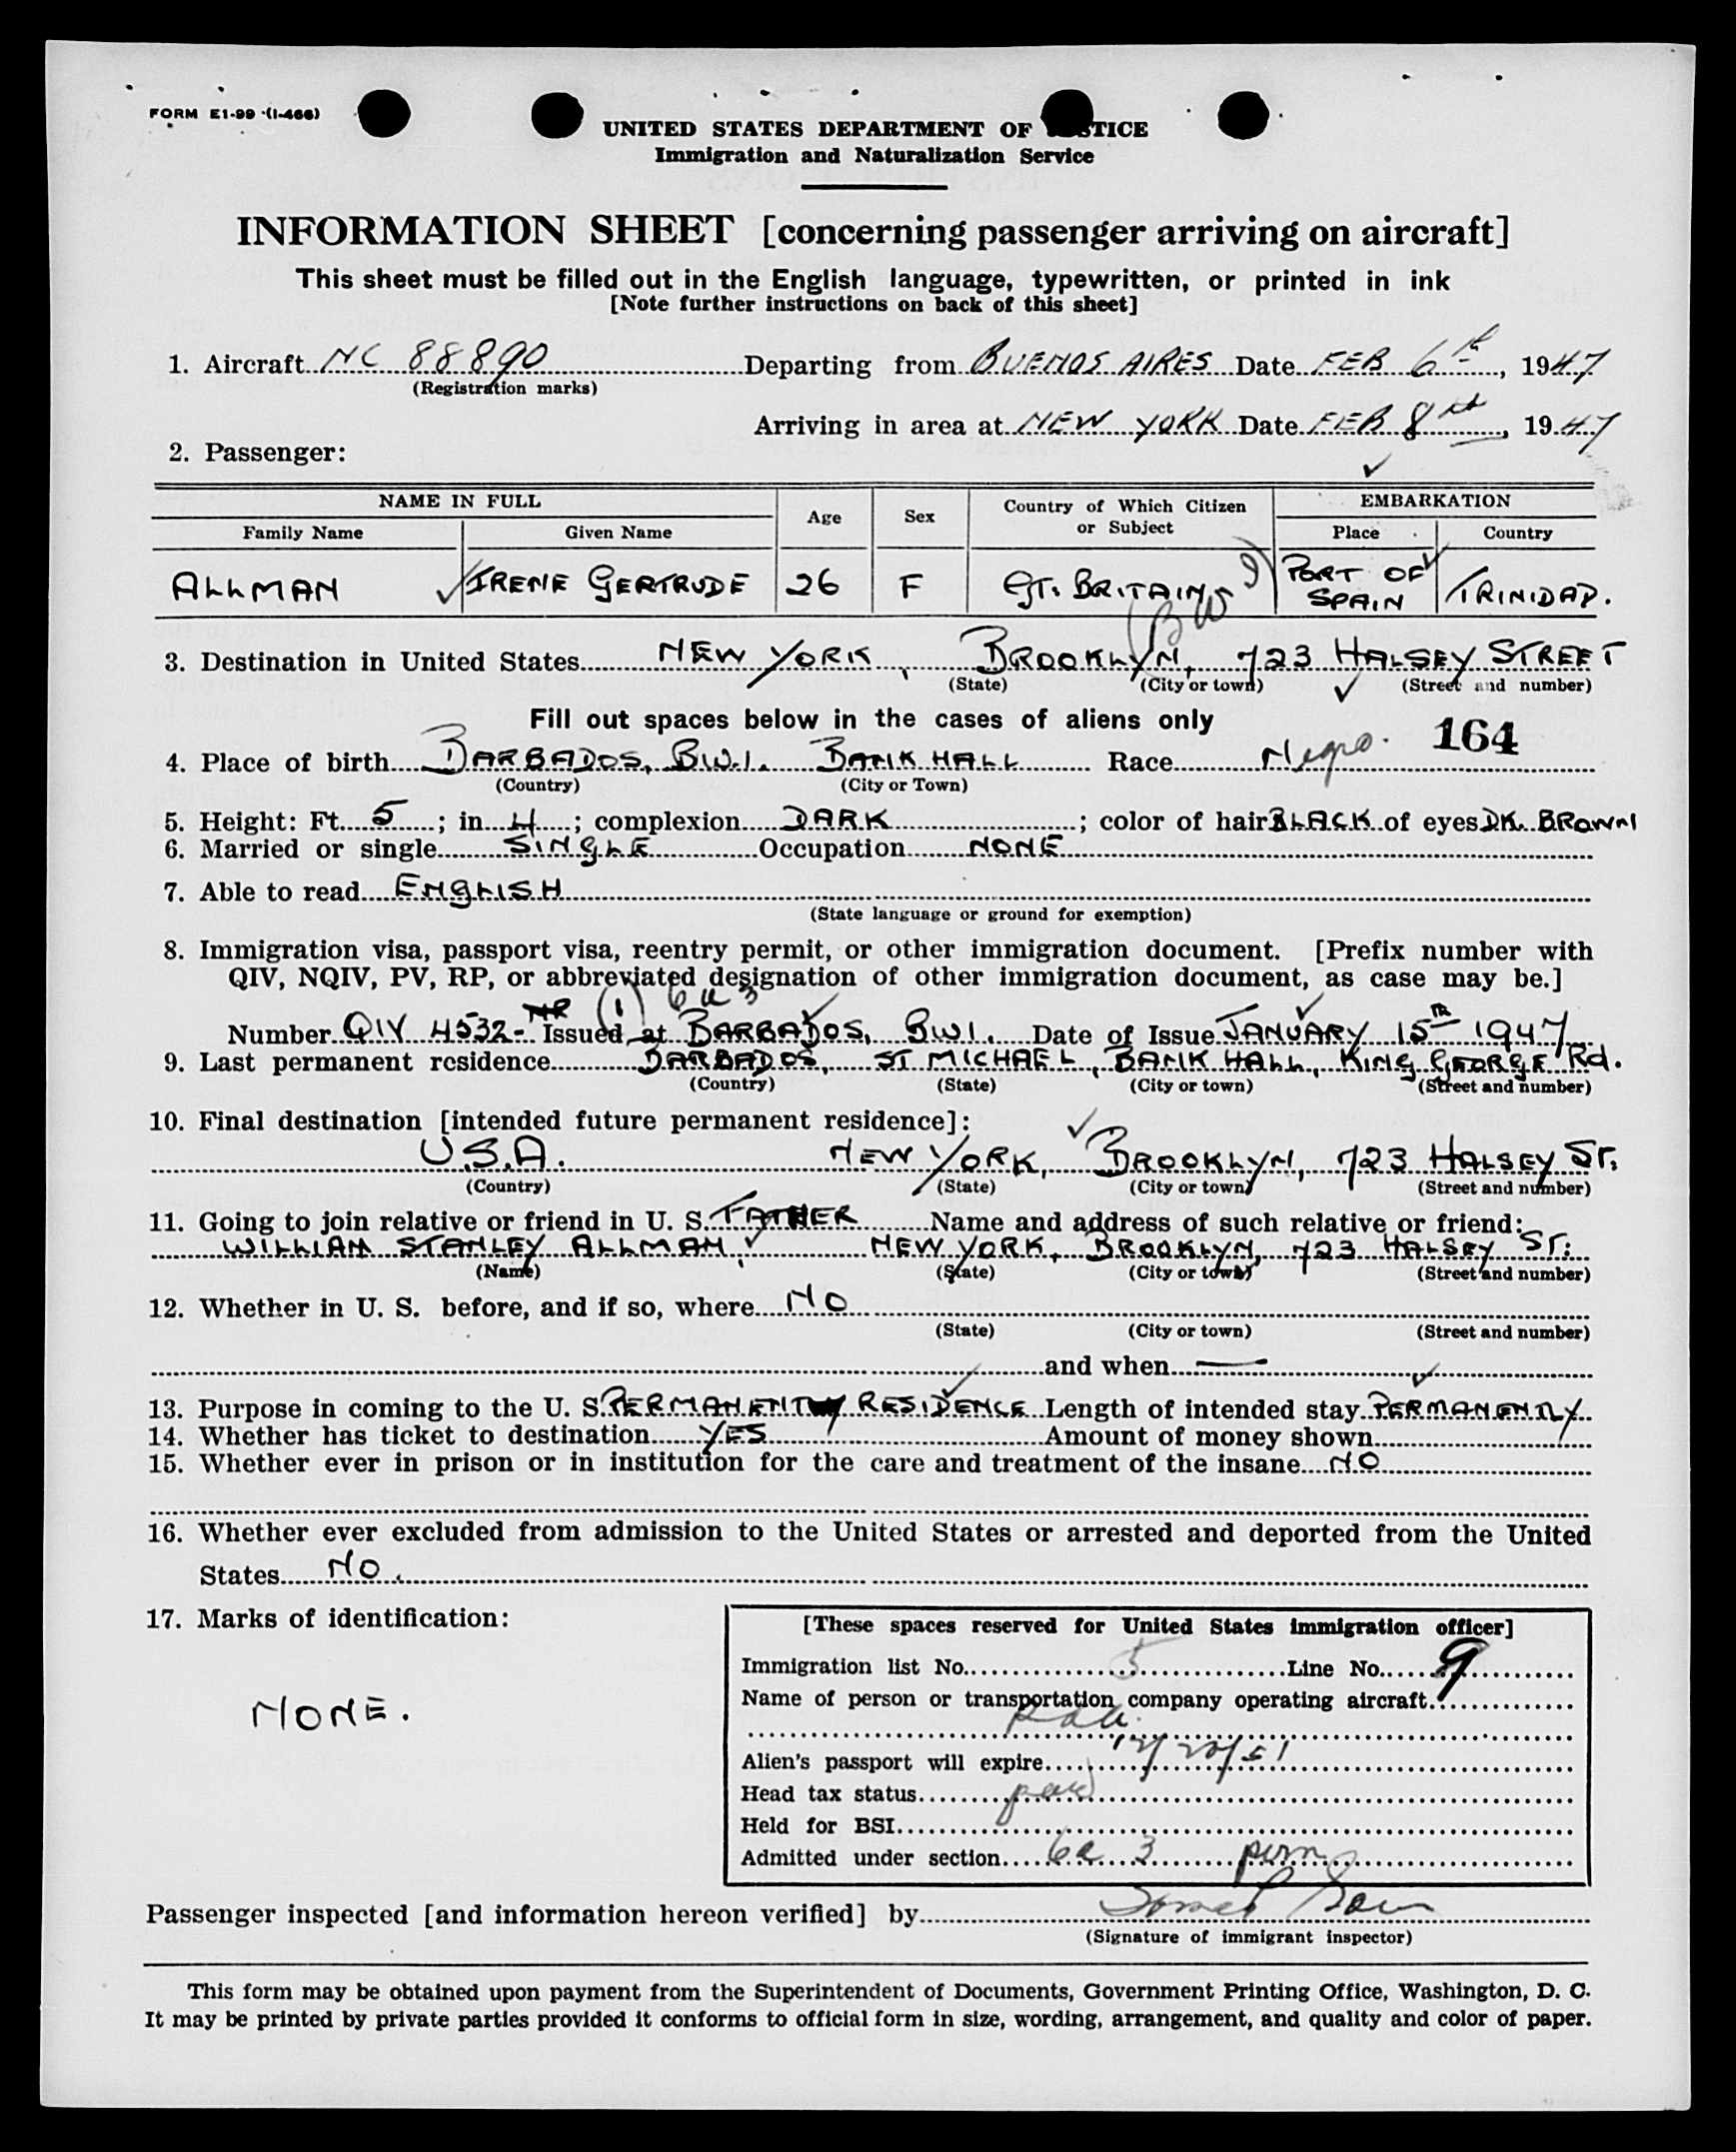 FORM E1-99 (I-466)
UNITED STATES DEPARTMENT OF JUSTICE
Immigration and Naturalization Service
INFORMATION SHEET [concerning passenger arriving on aircraft]
This sheet must be filled out in the English language, typewritten, or printed in ink
[Note further instructions on back of this sheet]
1. Aircraft NC 88890 Departing from BUENOS AIRES Date FEB 6th, 1947
(Registration marks)
Arriving in area at NEW YORK Date FEB 8th, 1947
2. Passenger:
NAME IN FULL Age Sex Country of Which Citizen or Subject EMBARKATION
Family Name Given Name Place Country
ALLMAN IRENE GERTRUDE 26 F GT. BRITAIN PORT OF SPAIN TRINIDAD.
(BWI)
3. Destination in United States NEW YORK, BROOKLYN, 723 HALSEY STREET
(State) (City or town) (Street and number)
Fill out spaces below in the cases of aliens only
164
4. Place of birth BARBADOS, B.W.I. BANK HALL Race Negro.
(Country) (City or Town)
5. Height: Ft. 5; in. 4; complexion DARK; color of hair BLACK of eyes DK. BROWN
6. Married or single SINGLE Occupation NONE
7. Able to read ENGLISH
(State language or ground for exemption)
8. Immigration visa, passport visa, reentry permit, or other immigration document. [Prefix number with
QIV, NQIV, PV, RP, or abbreviated designation of other immigration document, as case may be.]
(1) 6a 3
Number QIV 4532- NR Issued at BARBADOS, B.W.I. Date of Issue JANUARY 15TH 1947
9. Last permanent residence BARBADOS, ST MICHAEL, BANK HALL, KING GEORGE Rd.
(Country) (State) (City or town) (Street and number)
10. Final destination [intended future permanent residence]:
U.S.A. NEW YORK, BROOKLYN, 723 HALSEY ST.
(Country) (State) (City or town) (Street and number)
11. Going to join relative or friend in U. S. FATHER Name and address of such relative or friend:
WILLIAM STANLEY ALLMAN, NEW YORK, BROOKLYN, 723 HALSEY ST:
(Name) (State) (City or town) (Street and number)
12. Whether in U. S. before, and if so, where NO
(State) (City or town) (Street and number)
and when —
13. Purpose in coming to the U. S. PERMANENT RESIDENCE Length of intended stay PERMANENTLY
14. Whether has ticket to destination YES Amount of money shown
15. Whether ever in prison or in institution for the care and treatment of the insane NO
16. Whether ever excluded from admission to the United States or arrested and deported from the United
States NO.
17. Marks of identification:
NONE.
[These spaces reserved for United States immigration officer]
Immigration list No. 5 Line No. 9
Name of person or transportation company operating aircraft
paa.
Alien's passport will expire 12/20/51
Head tax status paid
Held for BSI
Admitted under section 6a 3 perm
Passenger inspected [and information hereon verified] by
(Signature of immigrant inspector)
This form may be obtained upon payment from the Superintendent of Documents, Government Printing Office, Washington, D. C.
It may be printed by private parties provided it conforms to official form in size, wording, arrangement, and quality and color of paper.